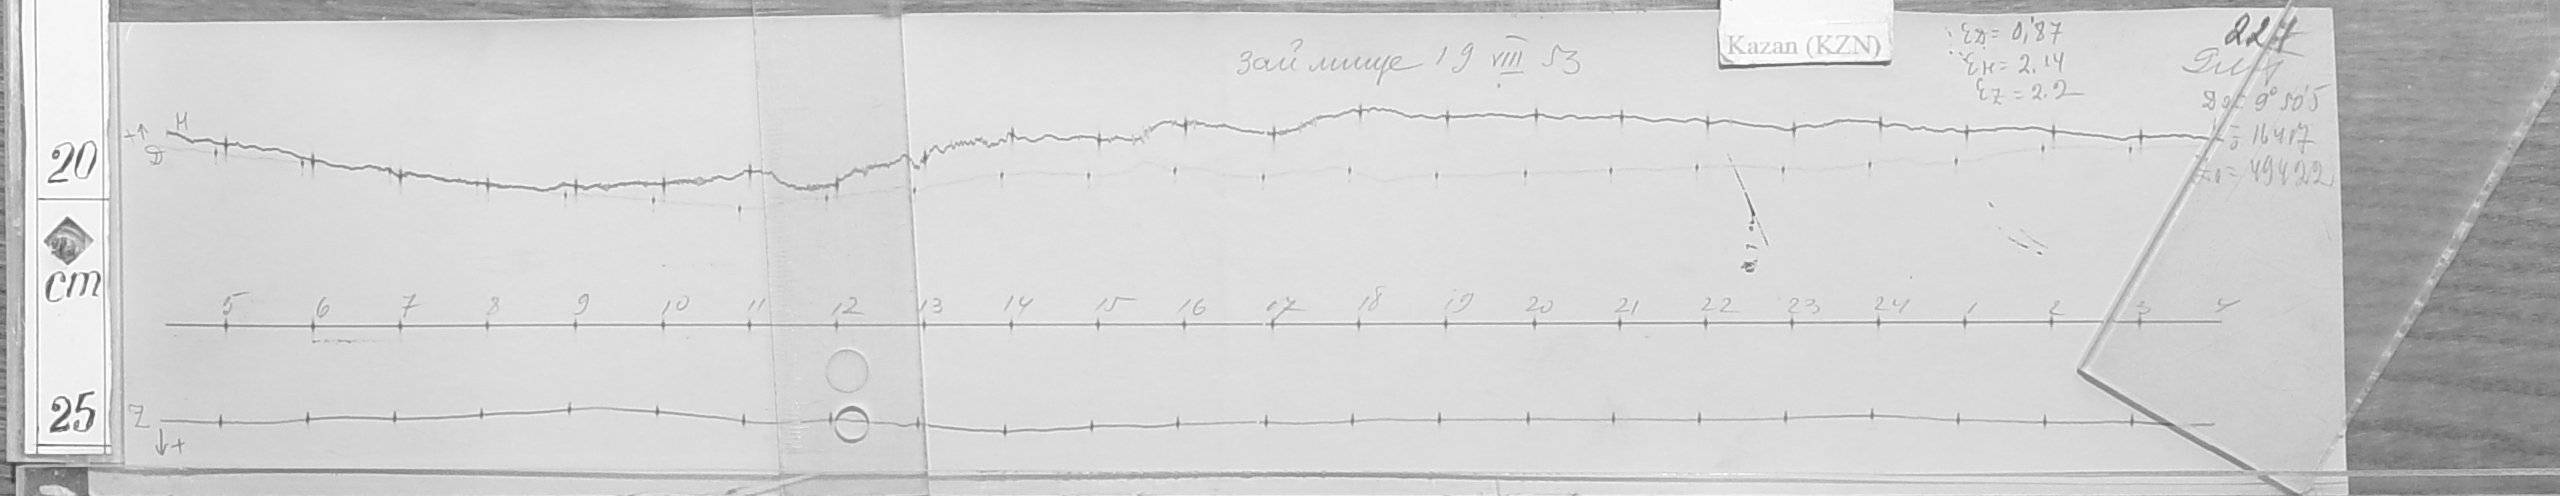 20
cm
25
Займище 19 VIII 53
Kazan (KZN)
ƐD = 0,'87
ƐH = 2.14
ƐZ = 2.2
D0 = 9° 50'5
= 16417
= 49422
+↑
H
D
5 6 7 8 9 10 11 12 13 14 15 16 17 18 19 20 21 22 23 24 1 2 3 4
Z
↓+